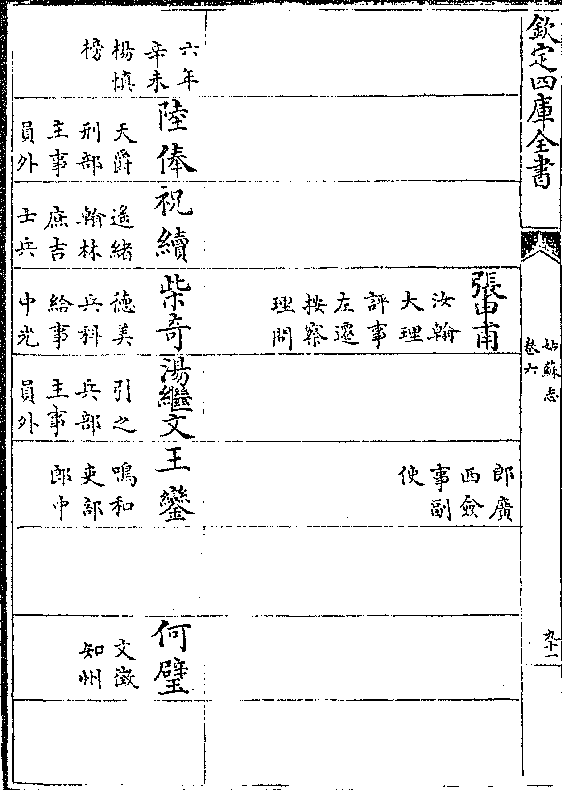 欽定四庫全書
姑蘇志
卷六
九十一
張申甫
汝翰
大理
評事
左遷
按察
理問
郎廣
西僉
事副
使
六年
辛未
楊慎
榜
陸俸
天爵
刑部
主事
員外
祝續
遥緒
翰林
庶吉
士兵
柴奇
德美
兵科
給事
中光
湯繼文
引之
兵部
主事
員外
王鑾
鳴和
吏部
郎中
何璧
文徵
知州